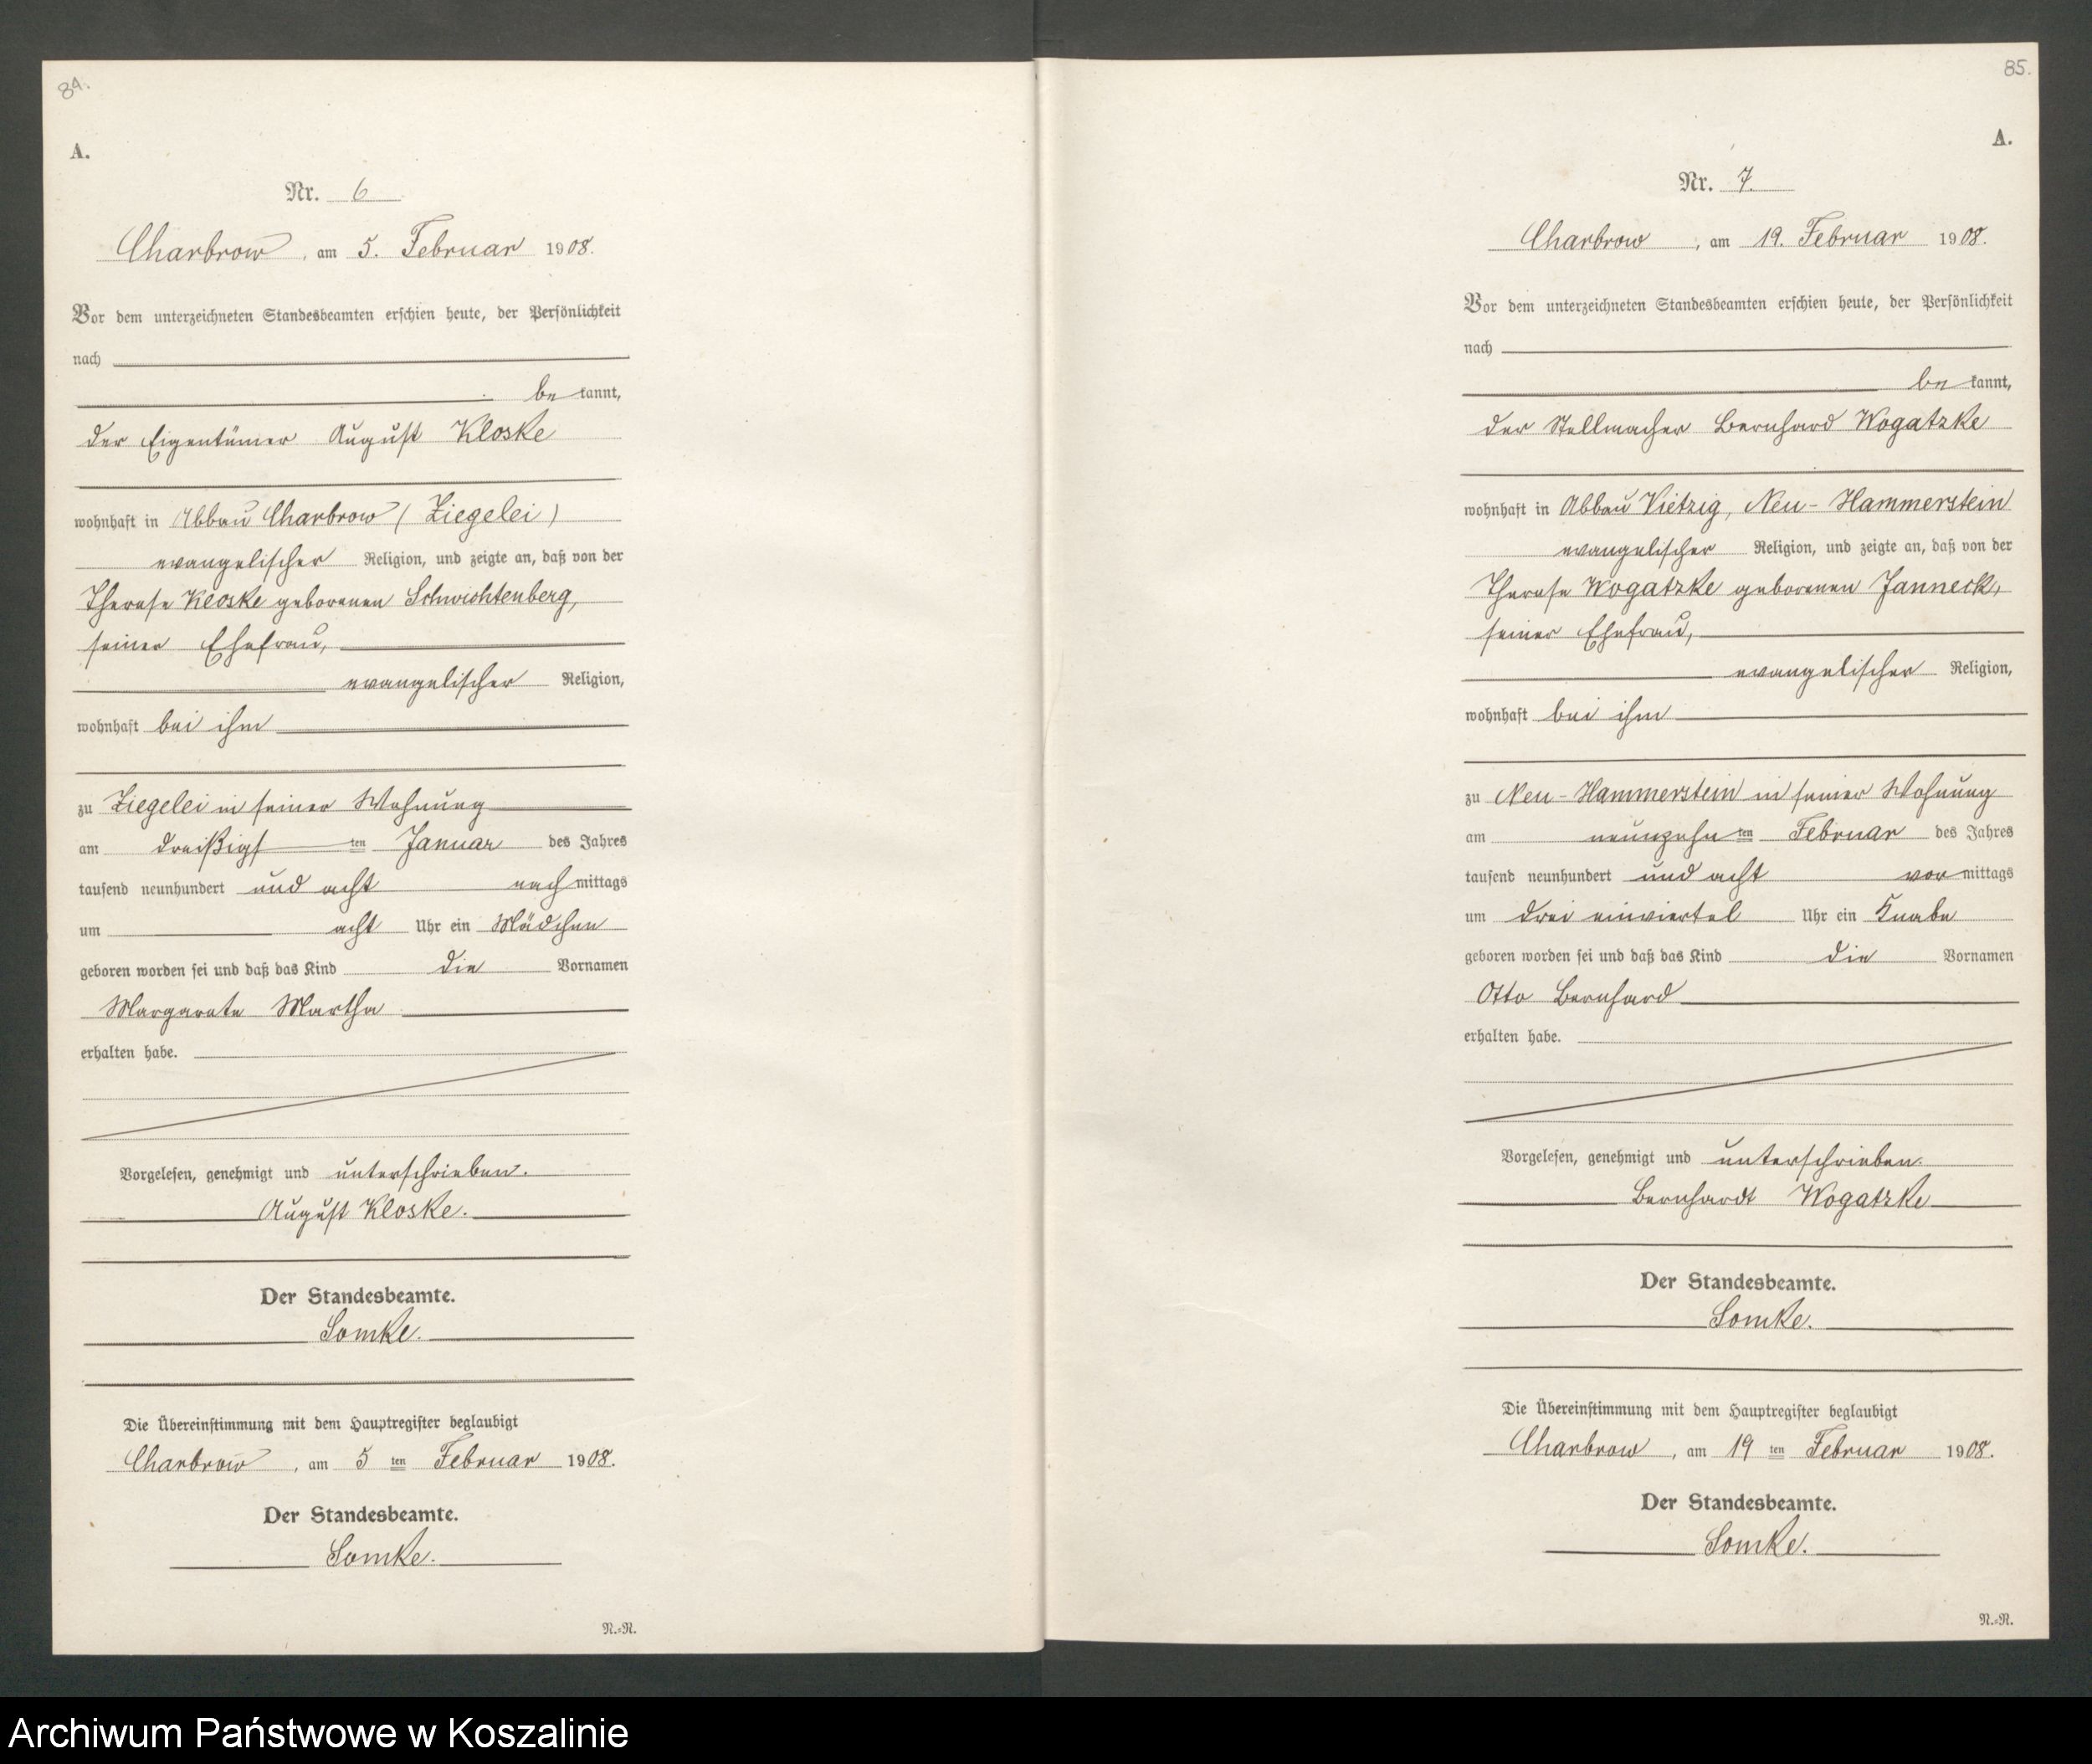 84.
A.
Nr. 6
Charbrow, am 5. Februar 1908.
Vor dem unterzeichneten Standesbeamten erschien heute, der Persönlichkeit
nach
bekannt,
der Eigentümer August Kloske
wohnhaft in Abbau Charbrow (Ziegelei)
evangelischer Religion, und zeigte an, daß von der
Therese Kloske geborenen Schwichtenberg,
seiner Ehefrau,
evangelischer Religion,
wohnhaft bei ihm
zu Ziegelei in seiner Wohnung
am dreißigsten Januar des Jahres
tausend neunhundert und acht nachmittags
um acht Uhr ein Mädchen
geboren worden sei und daß das Kind die Vornamen
Margarete Martha
erhalten habe.
Vorgelesen, genehmigt und unterschrieben.
August Kloske.
Der Standesbeamte.
Somke.
Die Übereinstimmung mit dem Hauptregister beglaubigt
Charbrow, am 5 ten Februar 1908.
Der Standesbeamte.
Somke.
N.=N.
85.
A.
Nr. 7.
Charbrow, am 19. Februar 1908.
Vor dem unterzeichneten Standesbeamten erschien heute, der Persönlichkeit
nach
bekannt,
der Stellmacher Bernhard Wogatzke
wohnhaft in Abbau Vietzig, Neu-Hammerstein
evangelischer Religion, und zeigte an, daß von der
Therese Wogatzke geborenen Janneck,
seiner Ehefrau,
evangelischer Religion,
wohnhaft bei ihm
zu Neu-Hammerstein in seiner Wohnung
am neunzehnten Februar des Jahres
tausend neunhundert und acht vormittags
um drei einviertel Uhr ein Knabe
geboren worden sei und daß das Kind die Vornamen
Otto Bernhard
erhalten habe.
Vorgelesen, genehmigt und unterschrieben.
Bernhardt Wogatzke
Der Standesbeamte.
Somke.
Die Übereinstimmung mit dem Hauptregister beglaubigt
Charbrow, am 19 ten Februar 1908.
Der Standesbeamte.
Somke.
N.=N.
Archiwum Państwowe w Koszalinie